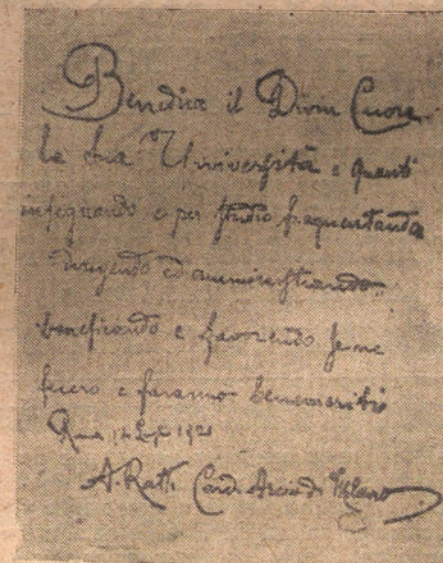 Benedica il Divin Cuore
la sua Università e quanti
insegnando e per studio frequentando
dirigendo ed amministrando
beneficando e favorendo se ne
fecero e faranno benemeriti
Roma 1921
A. Ratti Card. Arciv. di Milano